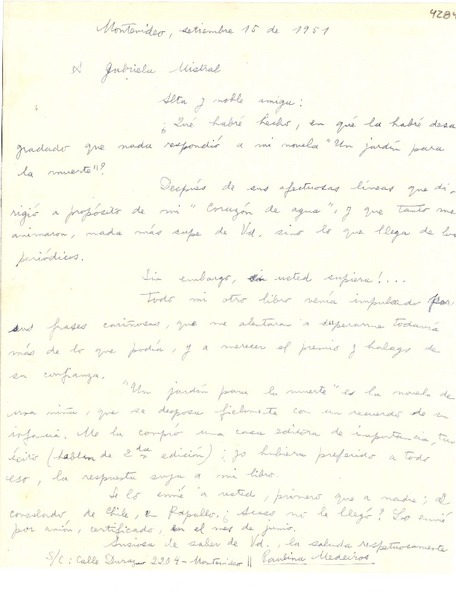 4284
Montevideo, setiembre 15 de 1951
A Gabriela Mistral
Alta y noble amiga:
¿Qué habré hecho, en qué la habré desa
gradado que nada respondió a mi novela "Un jardín para
la muerte"?
Después de sus afectuosas líneas que di-
rigió a propósito de mi "Corazón de agua", y que tanto me
animaron, nada más supe de Vd. sino lo que llega de los
periódicos.
Sin embargo, si usted supiera!...
Todo mi otro libro venía impulsado por
sus frases cariñosas, que me alentaron a superarme todavía
más de lo que podía, y a merecer el premio y halago de
su confianza.
"Un jardín para la muerte" es la novela de
una niña, que se desposa fielmente con un recuerdo de su
infancia. Me la compró una casa editora de importancia, tuvo
éxito (hablan de 2da edición); yo hubiera preferido a todo
eso, la respuesta suya a mi libro.
Se lo envié a usted, primero que a nadie; al
consulado de Chile, en Rapallo. ¿Acaso no le llegó? Lo envié
por avión, certificado, en el mes de junio.
Ansiosa de saber de Vd., la saluda respetuosamente
S/C: Calle 2234 - Montevideo || Paulina Medeiros